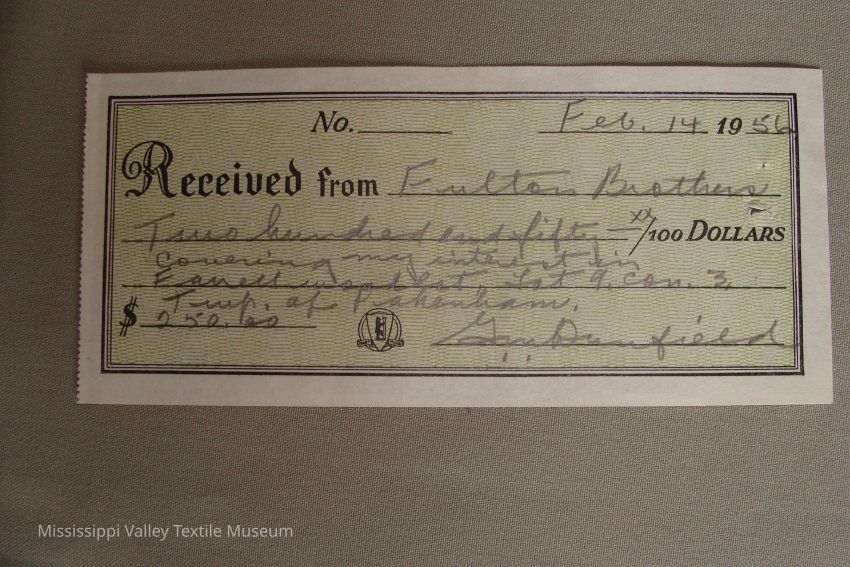 No. Feb. 14 1956
Received from Fulton Brothers
Two hundred and fifty xx/100 DOLLARS
covering my interest in
Farrell wood lot, Lot 9, con. 3
Twp. of Pakenham.
$ 250.00
Dunfield
Mississippi Valley Textile Museum